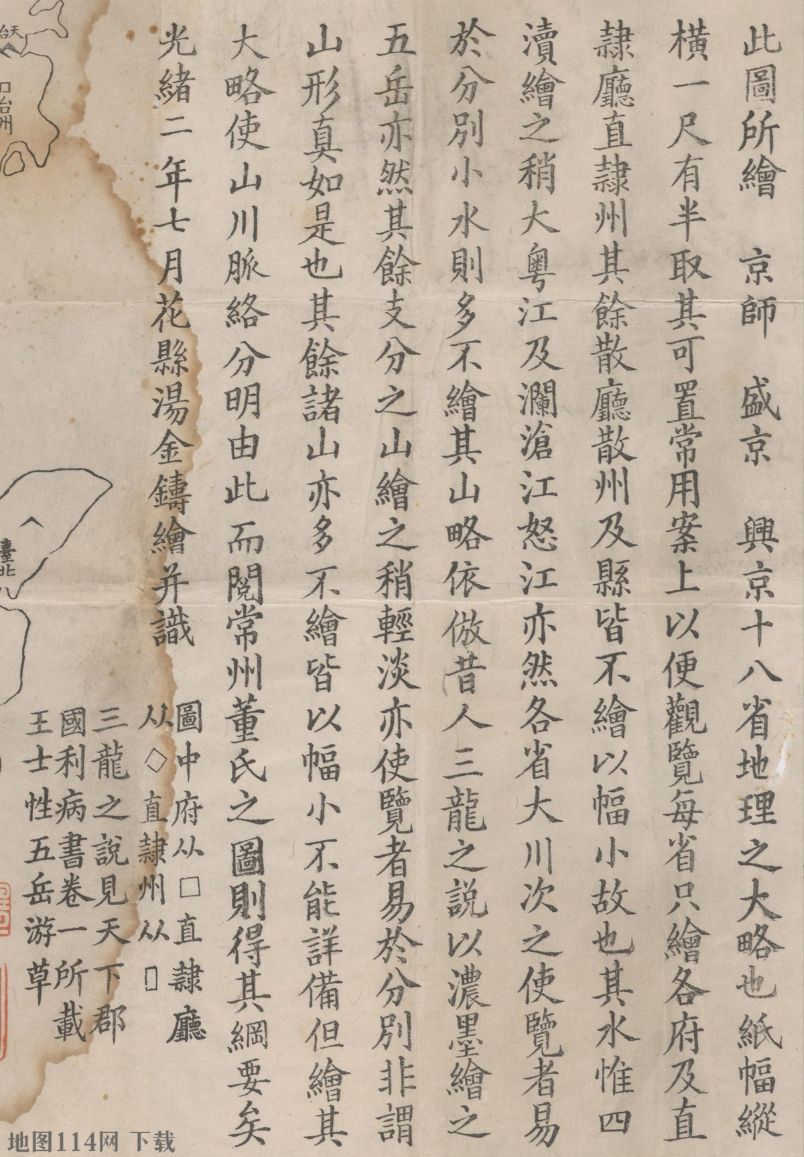 此圖所繪　京師　盛京　興京十八省地理之大略也紙幅縱
橫一尺有半取其可置常用案上以便觀覽每省只繪各府及直
隸廳直隸州其餘散廳散州及縣皆不繪以幅小故也其水惟四
瀆繪之稍大粵江及瀾滄江怒江亦然各省大川次之使覽者易
於分別小水則多不繪其山略依倣昔人三龍之說以濃墨繪之
五岳亦然其餘支分之山繪之稍輕淡亦使覽者易於分別非謂
山形真如是也其餘諸山亦多不繪皆以幅小不能詳備但繪其
大略使山川脈絡分明由此而閱常州董氏之圖則得其綱要矣
光緒二年七月花縣湯金鑄繪并識
圖中府从□直隸廳
从◇直隸州从▯
三龍之說見天下郡
國利病書卷一所載
王士性五岳游草
台州
臺北
地图114网 下载